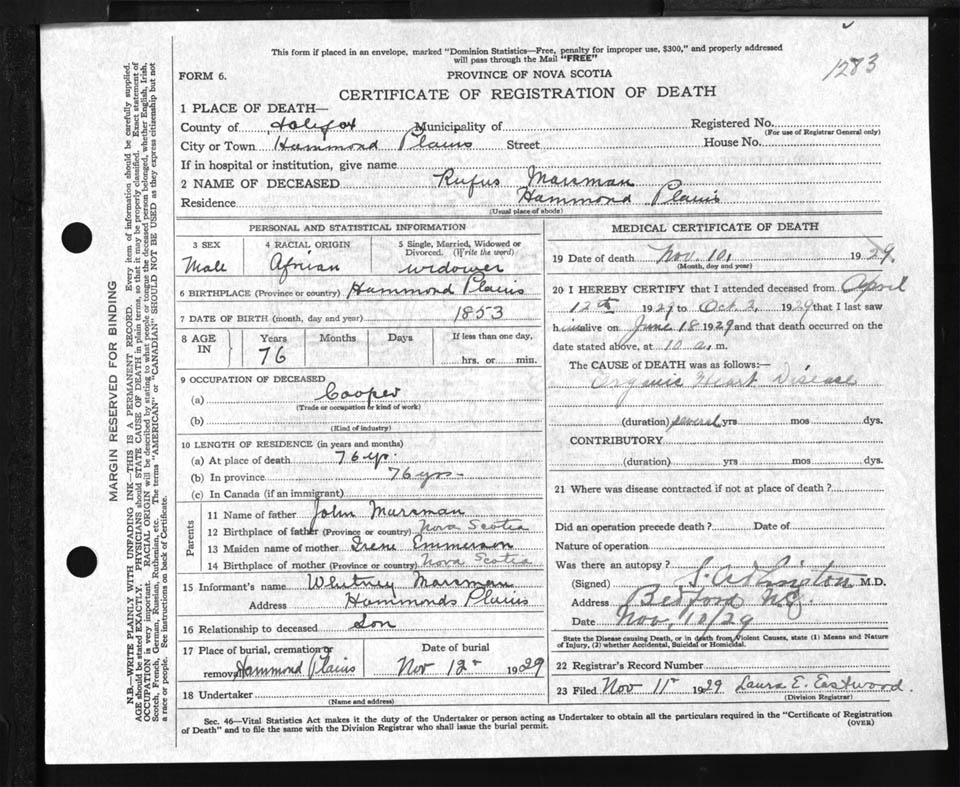 1283
This form if placed in an envelope, marked "Dominion Statistics—Free, penalty for improper use, $300," and properly addressed
will pass through the Mail "FREE"
FORM 6.
PROVINCE OF NOVA SCOTIA
CERTIFICATE OF REGISTRATION OF DEATH
1 PLACE OF DEATH—
County of Halifax Municipality of Registered No.
(For use of Registrar General only)
City or Town Hammond Plains Street House No.
If in hospital or institution, give name
2 NAME OF DECEASED Rufus Marsman
Residence Hammond Plains
(Usual place of abode)
PERSONAL AND STATISTICAL INFORMATION
3 SEX 4 RACIAL ORIGIN 5 Single, Married, Widowed or
Divorced. (Write the word)
Male African widower
6 BIRTHPLACE (Province or country) Hammond Plains
7 DATE OF BIRTH (month, day and year) 1853
8 AGE IN Years Months Days If less than one day,
76 hrs. or min.
9 OCCUPATION OF DECEASED
(a) Cooper
(Trade or occupation or kind of work)
(b)
(Kind of industry)
10 LENGTH OF RESIDENCE (in years and months)
(a) At place of death 76 yr.
(b) In province 76 yrs
(c) In Canada (if an immigrant)
Parents
11 Name of father John Marsman
12 Birthplace of father (Province or country) Nova Scotia
13 Maiden name of mother Irene Emmerson
14 Birthplace of mother (Province or country) Nova Scotia
15 Informant's name Whitney Marsman
Address Hammonds Plains
16 Relationship to deceased Son
17 Place of burial, cremation or Date of burial
removal Hammond Plains Nov 12th 1929
18 Undertaker
(Name and address)
MEDICAL CERTIFICATE OF DEATH
19 Date of death Nov. 10, 1929.
(Month, day and year)
20 I HEREBY CERTIFY that I attended deceased from April
12th 1929 to Oct. 2, 1929 that I last saw
him alive on June 18 1929 and that death occurred on the
date stated above, at 10 a. m.
The CAUSE OF DEATH was as follows:
Organic Heart Disease
(duration) several yrs mos dys.
CONTRIBUTORY
(duration) yrs mos dys.
21 Where was disease contracted if not at place of death?
Did an operation precede death? Date of
Nature of operation
Was there an autopsy?
(Signed) M.D.
Address Bedford N.S.
Date Nov. 10/29
State the Disease causing Death, or in death from Violent Causes, state (1) Means and Nature
of Injury, (2) whether Accidental, Suicidal or Homicidal.
22 Registrar's Record Number
23 Filed Nov 11th 1929 Laura E. Eastwood.
(Division Registrar)
Sec. 46—Vital Statistics Act makes it the duty of the Undertaker or person acting as Undertaker to obtain all the particulars required in the "Certificate of Registration
of Death" and to file the same with the Division Registrar who shall issue the burial permit.
(OVER)
MARGIN RESERVED FOR BINDING
N.B.—WRITE PLAINLY WITH UNFADING INK—THIS IS A PERMANENT RECORD. Every item of information should be carefully supplied.
AGE should be stated EXACTLY. PHYSICIANS should STATE CAUSE OF DEATH in plain terms, so that it may be properly classified. Exact statement of
OCCUPATION is very important. RACIAL ORIGIN will be described by stating to what people or tongue the deceased person belonged, whether English, Irish,
Scotch, French, German, Russian, Ruthenian, etc. The terms "AMERICAN" or "CANADIAN" SHOULD NOT BE USED as they express citizenship but not
a race or people. See instructions on back of Certificate.